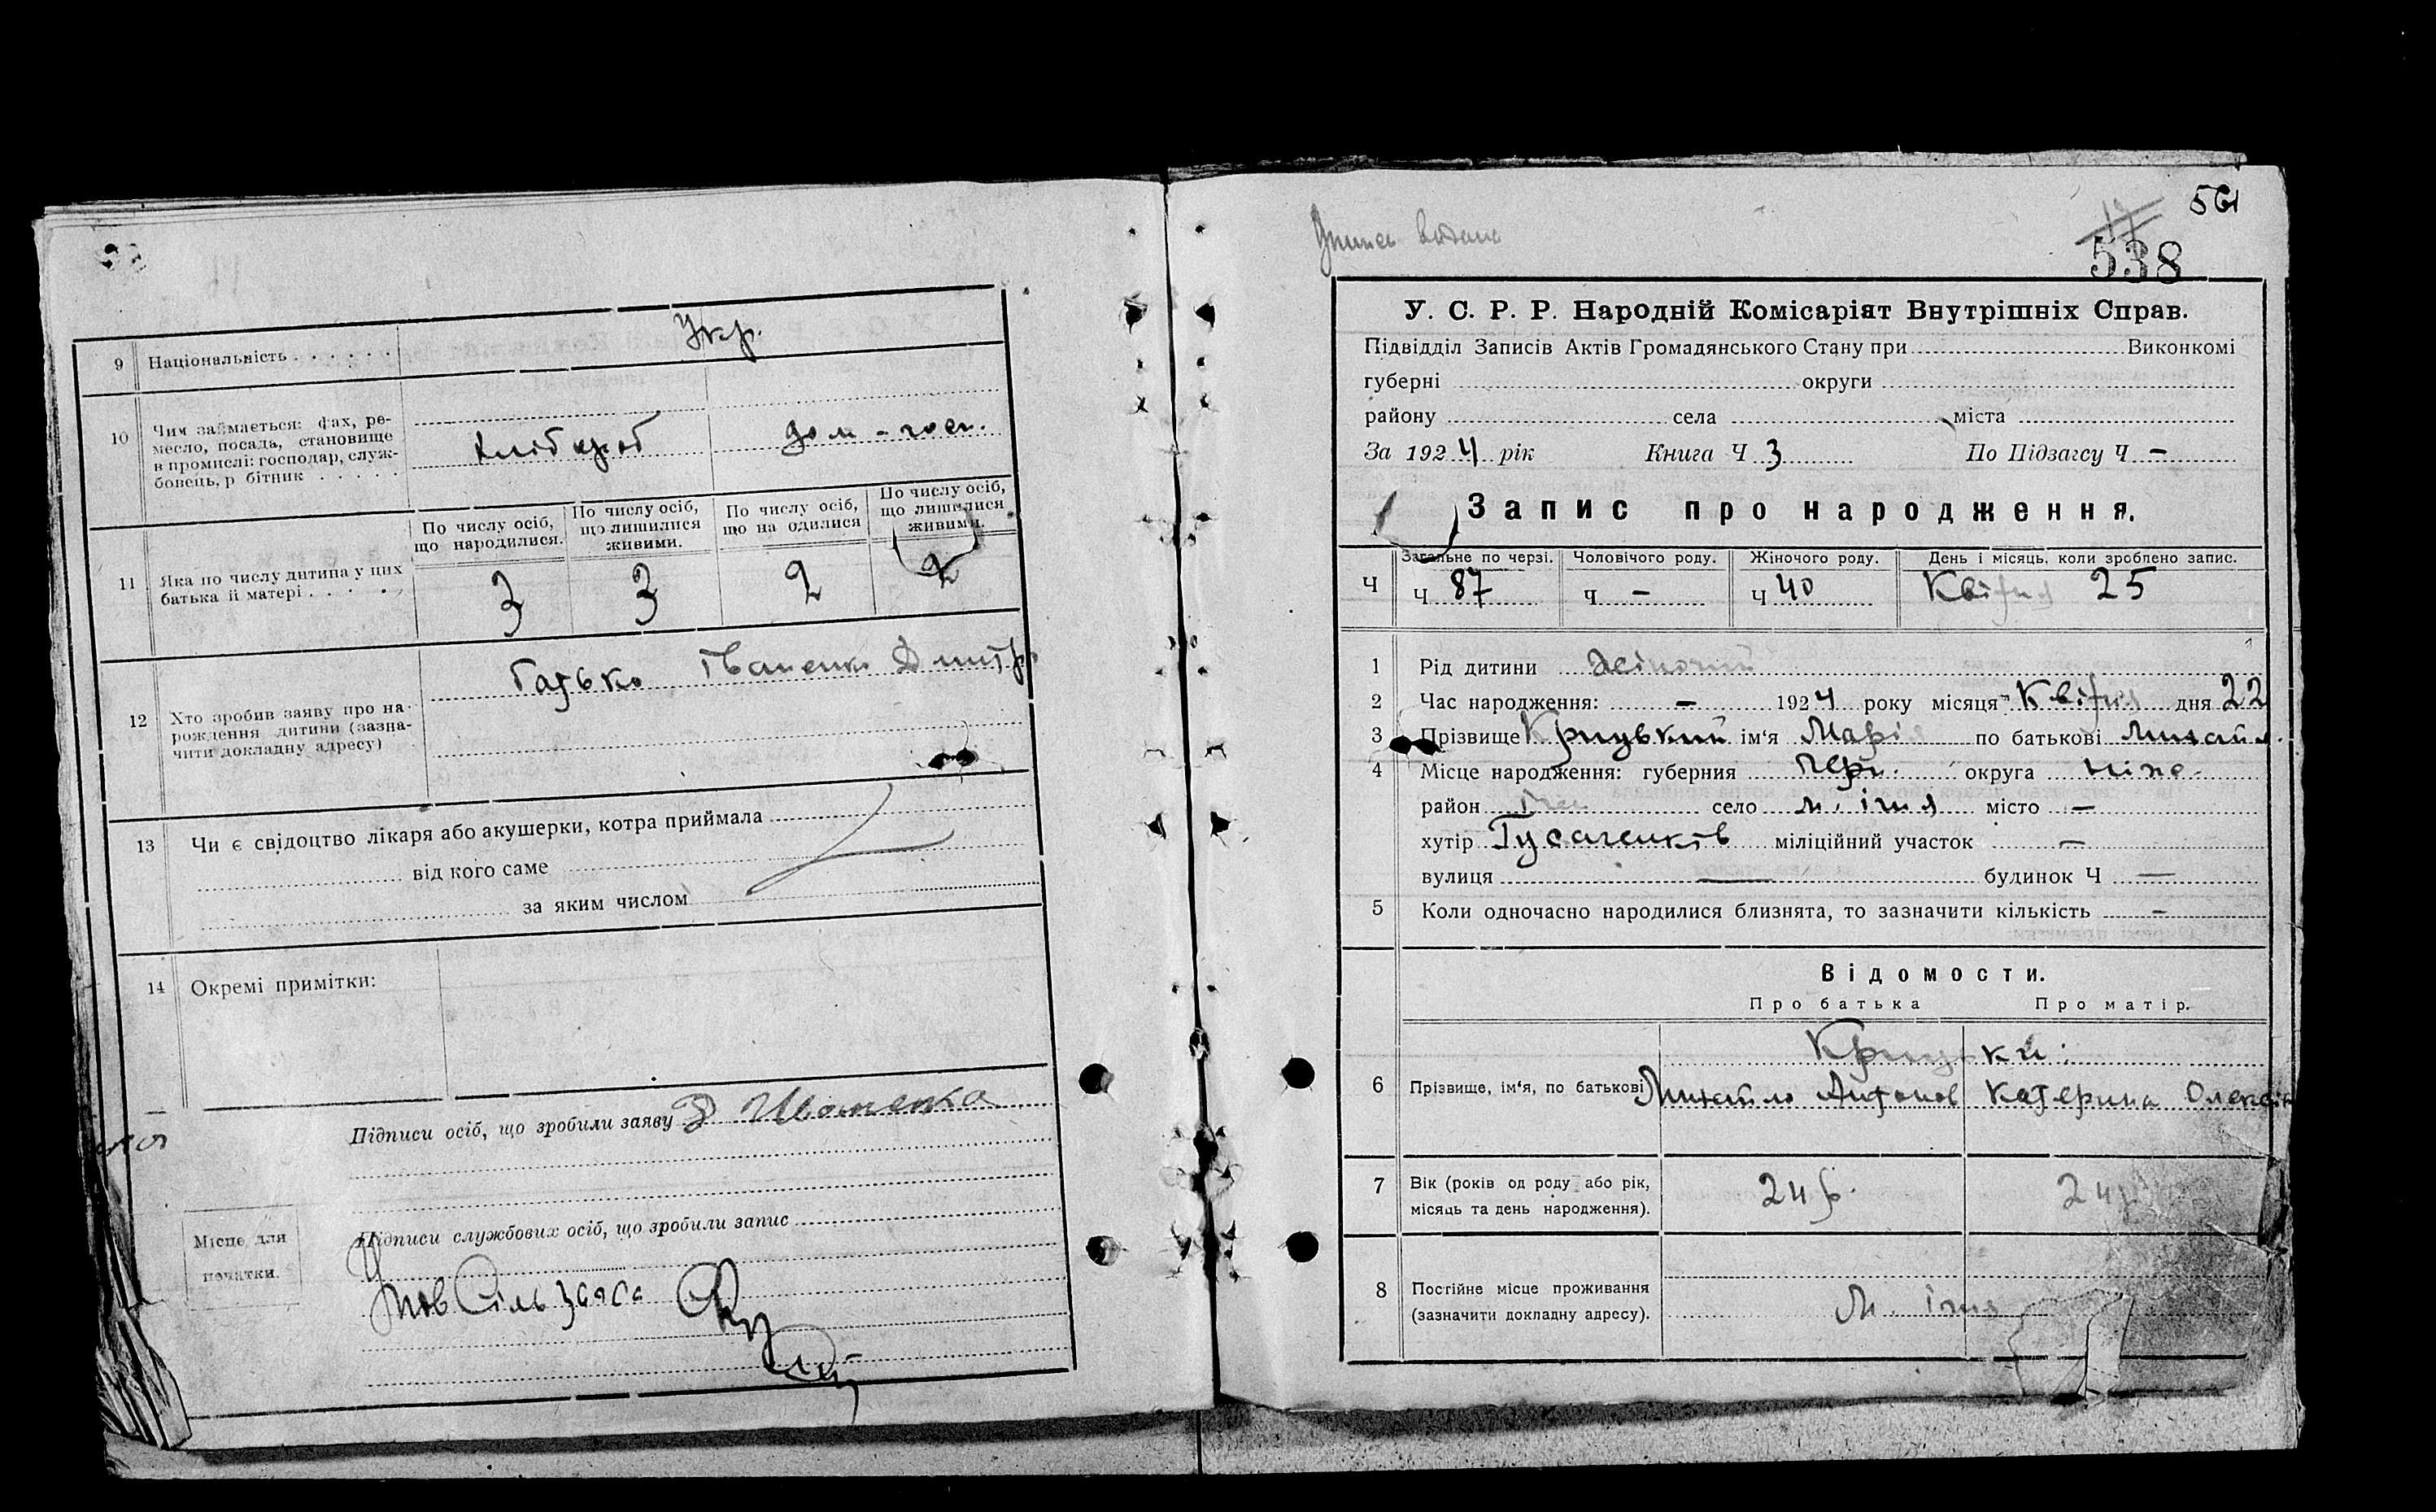 9 Національність . . . . . . Укр.
10 Чим займається: фах, ре-
месло, посада, становище
в промислі: господар, служ-
бовець, р бітник . . . . .
хлібороб дом-госп.
11 Яка по числу дитина у цих
батька іі матері . . . . .
По числу осіб,
що народилися.
По числу осіб,
що лишилися
живими.
По числу осіб,
що на одилися
По числу осіб,
що лишилися
живими.
3 3 2 2
12 Хто зробив заяву про на-
рождення дитини (зазна-
чити докладну адресу)
Батько Іваненко Дмитр
13 Чи є свідоцтво лікаря або акушерки, котра приймала
від кого саме
за яким числом
14 Окремі примітки:
Підписи осіб, що зробили заяву Д Иваненко
Місце для
печатки.
Підписи службових осіб, що зробили запис
561
17
538
У. С. Р. Р. Народній Комісаріят Внутрішніх Справ.
Підвідділ Записів Актів Громадянського Стану при Виконкомі
губерні округи
району села міста
За 1924 рік Книга Ч 3 По Підзагсу Ч —
Запис про народження.
Ч Загальне по черзі. Чоловічого роду. Жіночого роду. День і місяць, коли зроблено запис.
Ч 87 Ч — Ч 40 Квітня 25
1 Рід дитини Жіночий
2 Час народження: — 1924 року місяця Квітня дня 22
3 Прізвище Крицький ім'я Марія по батькові Михайл.
4 Місце народження: губерния Черн. округа Ніже-
район Ічн село м. Ічня місто —
хутір Гусаченків міліційний участок —
вулиця — будинок Ч —
5 Коли одночасно народилися близнята, то зазначити кількість —
Відомости.
Про батька Про матір.
Крицькі:
6 Прізвище, ім'я, по батькові Михайло Антонов Катерина Олексіїв
7 Вік (років од роду або рік,
місяць та день народження).
24 р. 24 р
8 Постійне місце проживання
(зазначити докладну адресу).
М. Ічня